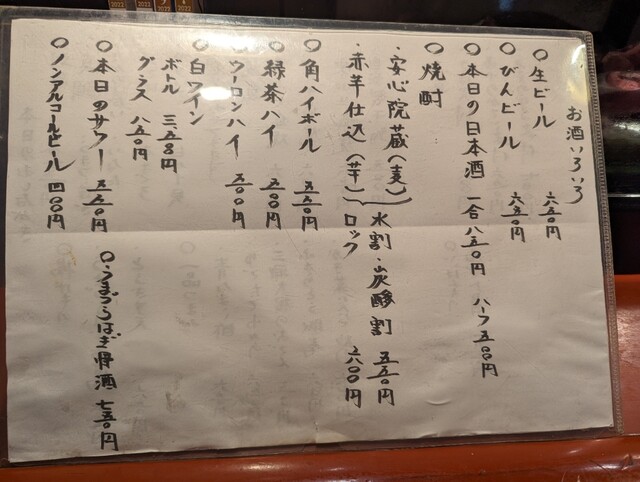 お酒いろいろ
○生ビール 六五〇円
○びんビール 六五〇円
○本日の日本酒 一合 八五〇円 ハーフ 五〇〇円
○焼酎
・安心院蔵(麦) 水割・炭酸割 五五〇円
・赤芋仕込(芋) ロック 六〇〇円
○角ハイボール 五五〇円
○緑茶ハイ 五五〇円
○ウーロンハイ 五〇〇円
○白ワイン
ボトル 三五〇円
グラス 八五〇円
○本日のサワー 五五〇円
○うまづらはぎ骨酒 七五〇円
○ノンアルコールビール 四〇〇円